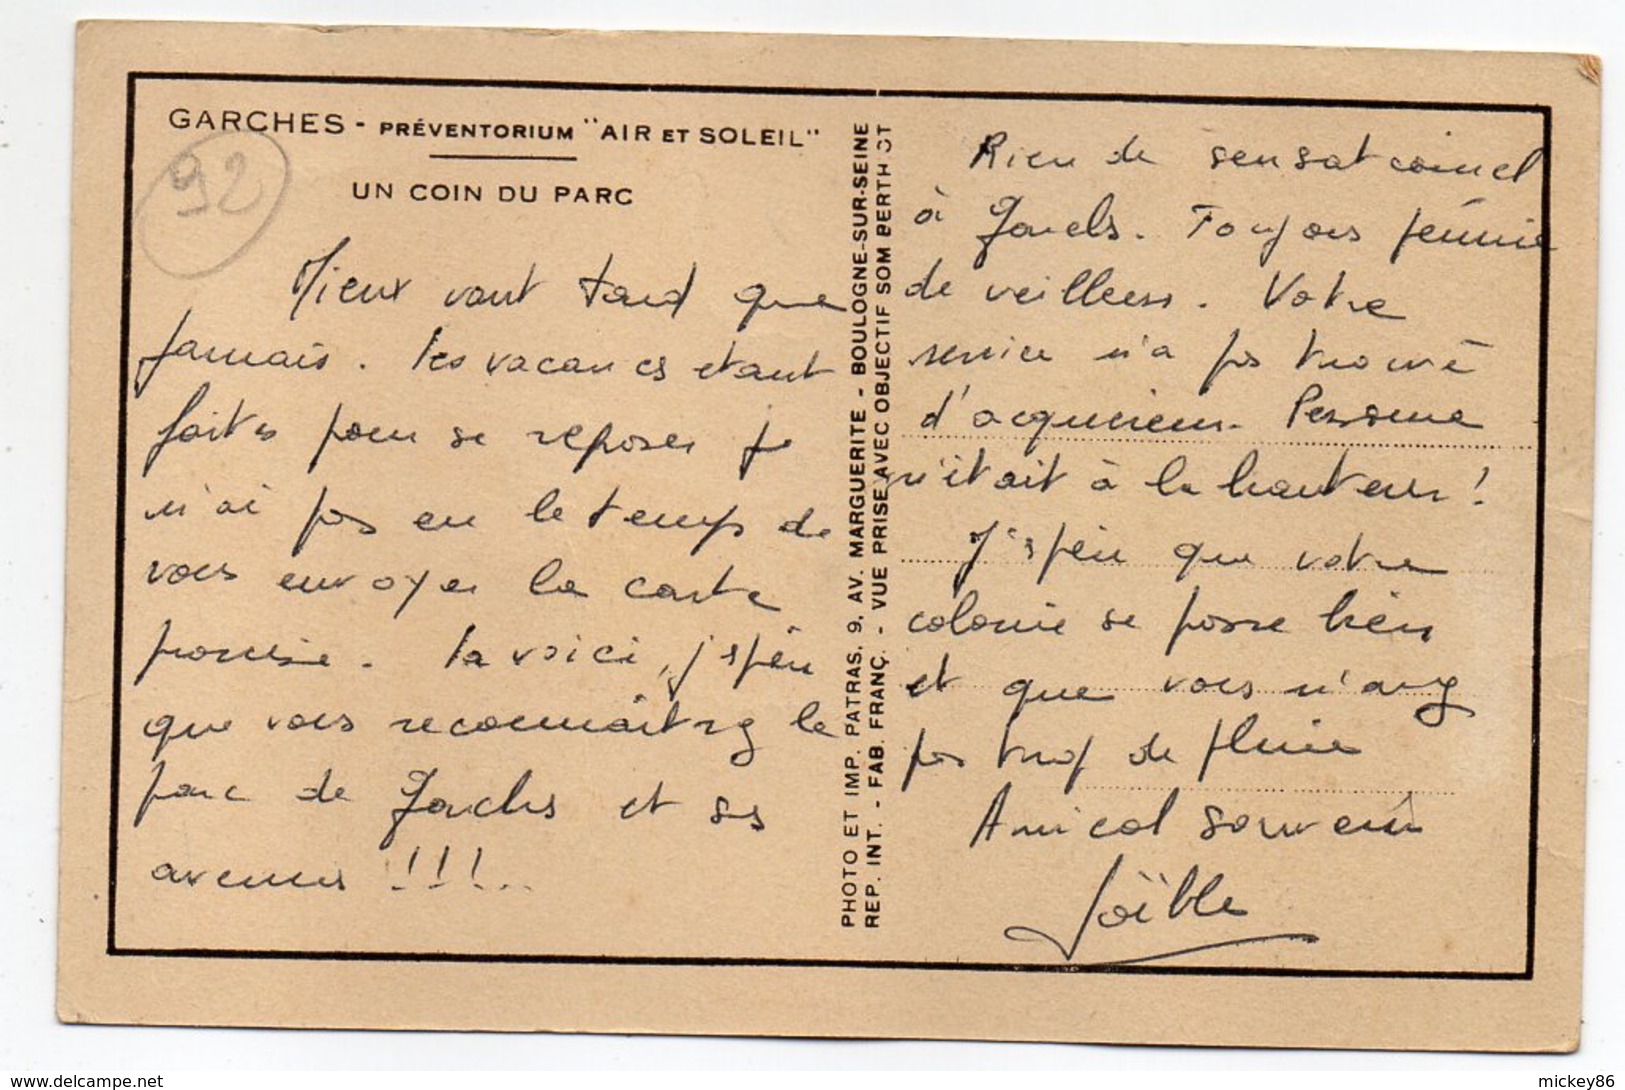 GARCHES - PRÉVENTORIUM "AIR ET SOLEIL"
UN COIN DU PARC
92
Mieux vaut tard que
jamais. Les vacances étant
faites pour se reposer je
n'ai pas eu le temps de
vous envoyer la carte
promise. La voici, j'espère
que vous reconnaîtrez le
parc de Garches et ses
avenues !!!...
PHOTO ET IMP. PATRAS, 9, AV. MARGUERITE - BOULOGNE-SUR-SEINE
REP. INT. - FAB. FRANÇ. - VUE PRISE AVEC OBJECTIF SOM BERTHIOT
Rien de sensationnel
à Garches. Toujours
de veilleuses. Votre
service n'a pas trouvé
d'acquéreur. Personne
n'était à la hauteur !
J'espère que votre
colonie se passe bien
et que vous n'avez
pas trop de pluie
Amical souvenir
Joëlle
mickey86